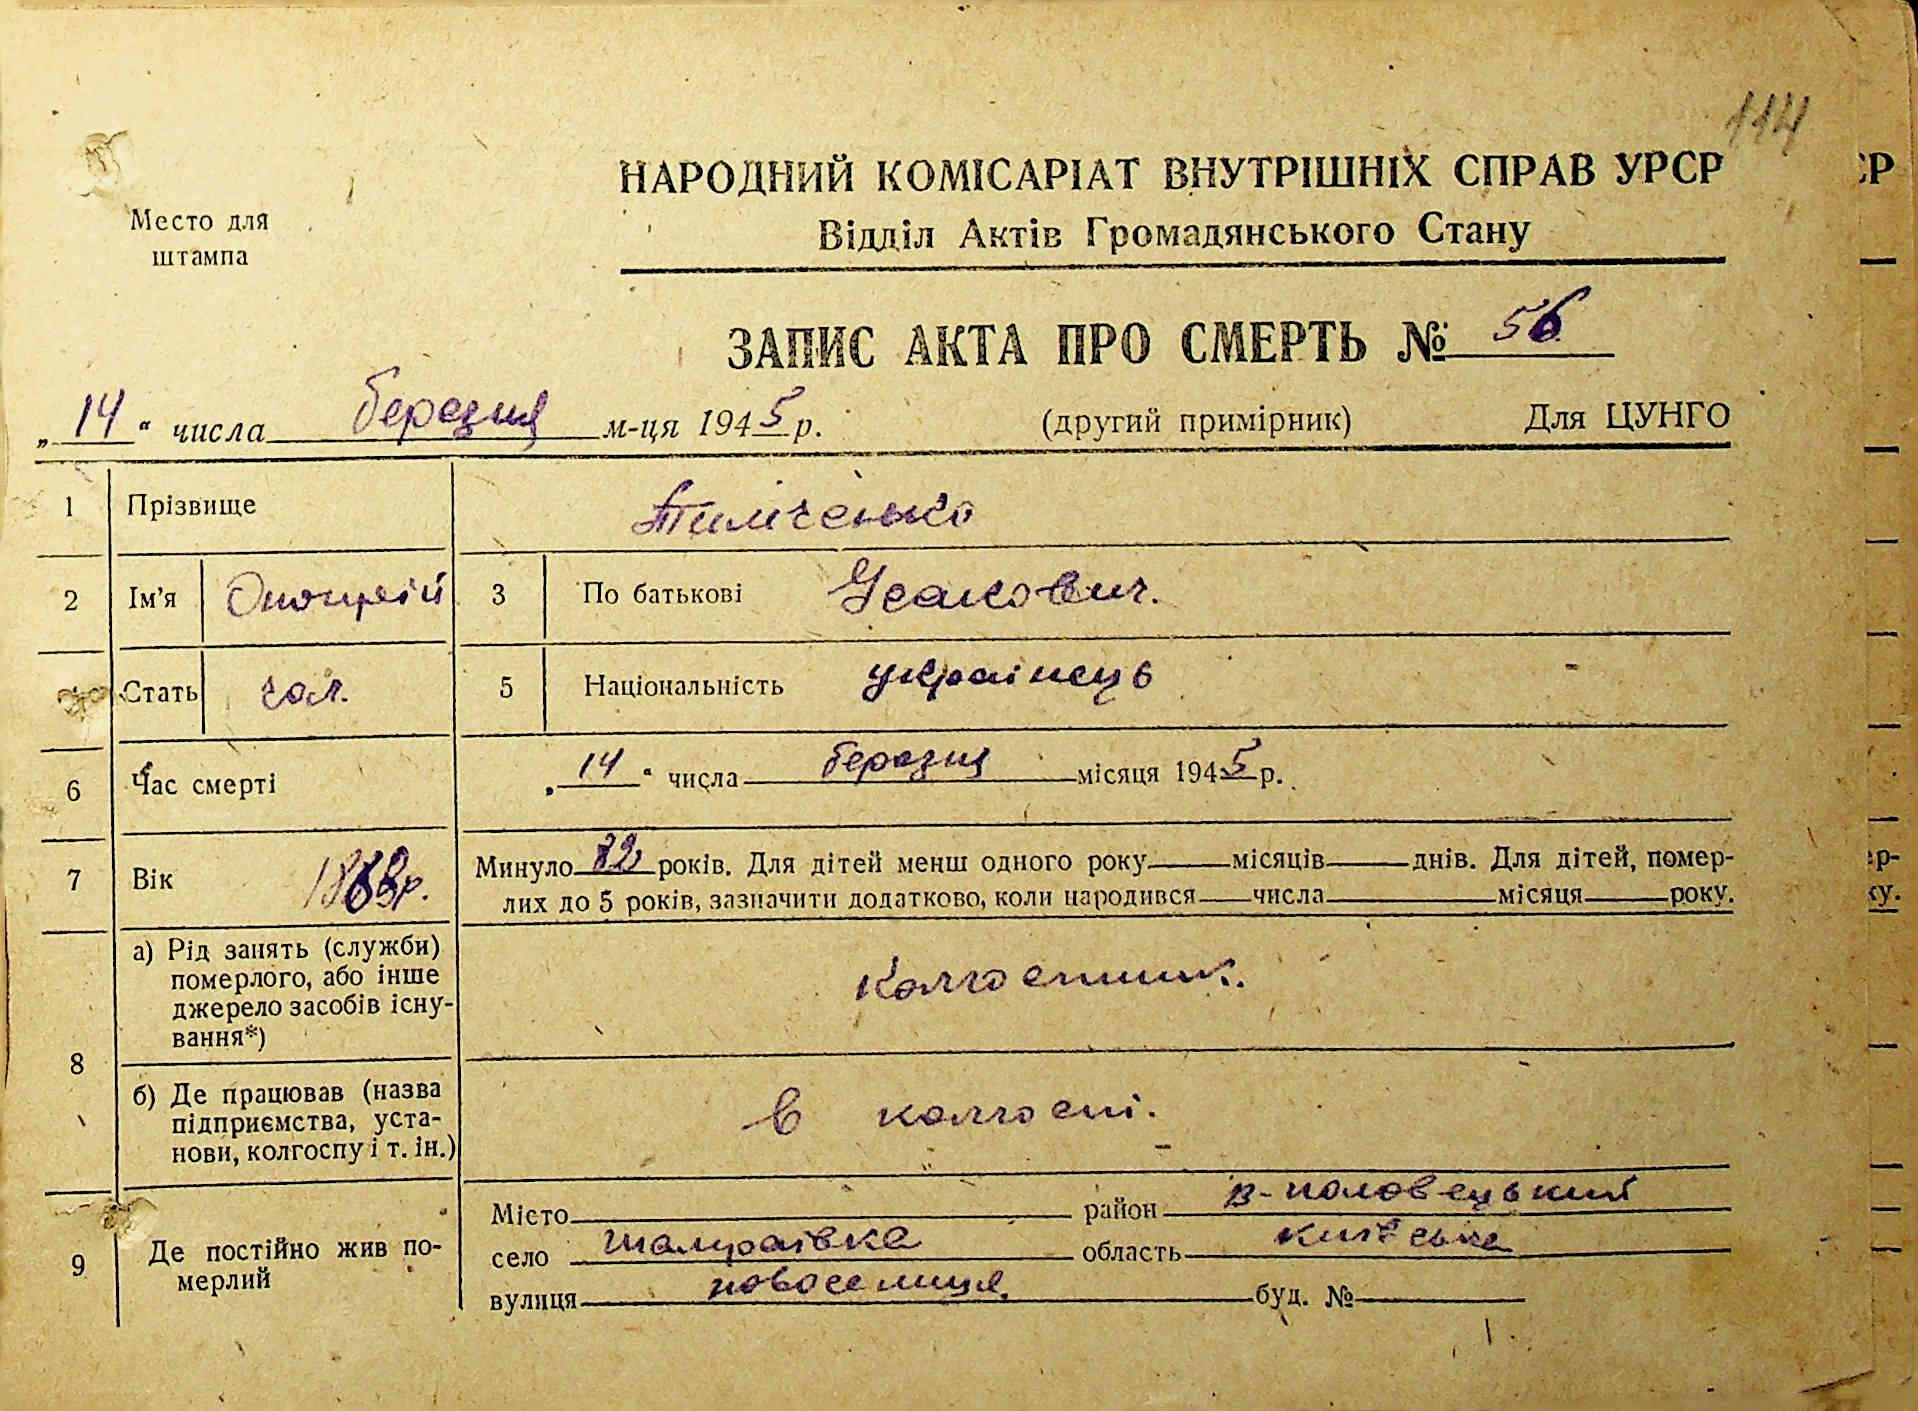 114
НАРОДНИЙ КОМІСАРІАТ ВНУТРІШНІХ СПРАВ УРСР
Відділ Актів Громадянського Стану
Место для
штампа
ЗАПИС АКТА ПРО СМЕРТЬ № 56
„14“ числа березня м-ця 1945 р. (другий примірник) Для ЦУНГО
1 Прізвище Тимченко
2 Ім'я 3 По батькові Усакович.
Стать чол. 5 Національність українець
6 Час смерті „14“ числа березня місяця 1945 р.
7 Вік Минуло 82 років. Для дітей менш одного року місяців днів. Для дітей, помер-
лих до 5 років, зазначити додатково, коли народився числа місяця року.
8 а) Рід занять (служби)
померлого, або інше
джерело засобів існу-
вання*)
колгоспник.
б) Де працював (назва
підприємства, уста-
нови, колгоспу і т. ін.)
в колгоспі.
9 Де постійно жив по-
мерлий
Місто район в-половецький
село шамраївка область київська
вулиця новоселиця. буд. №
СР
ер-
ку.